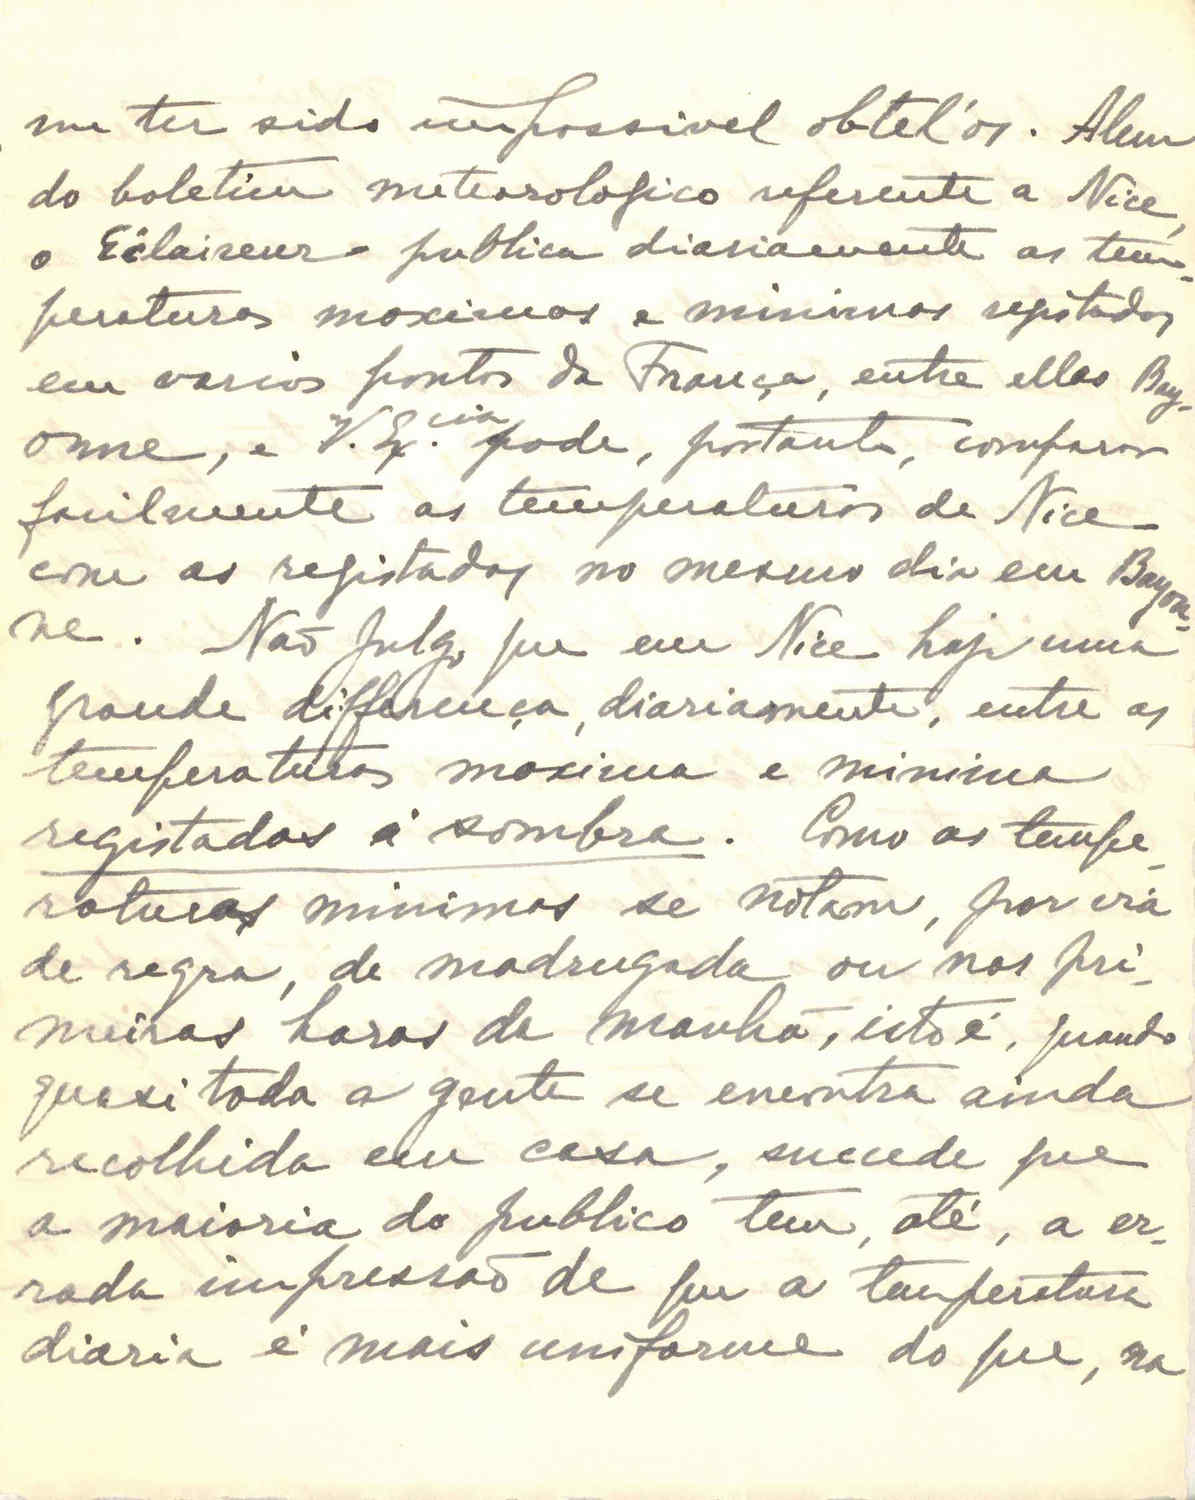 me ter sido impossivel obtel'os. Alem
do boletim meteorologico referente a Nice,
o Eclaireur publica diariamente as tem-
peraturas maximas e minimas registadas
em varios pontos da França, entre ellas Bay-
onne, e V. Ex.cia pode, portanto, comparar
facilmente as temperaturas de Nice
com as registadas no mesmo dia em Bayon-
ne. Não julgo que em Nice haja uma
grande differença, diariamente, entre as
temperaturas maxima e minima
registadas á sombra. Como as tempe-
raturas minimas se notam, por via
de regra, de madrugada ou nas pri-
meiras horas da manhã, isto é, quando
quasi toda a gente se encontra ainda
recolhida em casa, succede que
a maioria do publico tem, até, a er-
rada impressão de que a temperatura
diaria é mais uniforme do que, na